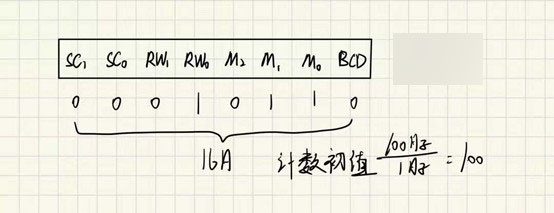 SC₁ SC₀ RW₁ RW₀ M₂ M₁ M₀ BCD
0 0 0 1 0 1 1 0
16A
计数初值 100Hz/1Hz = 100